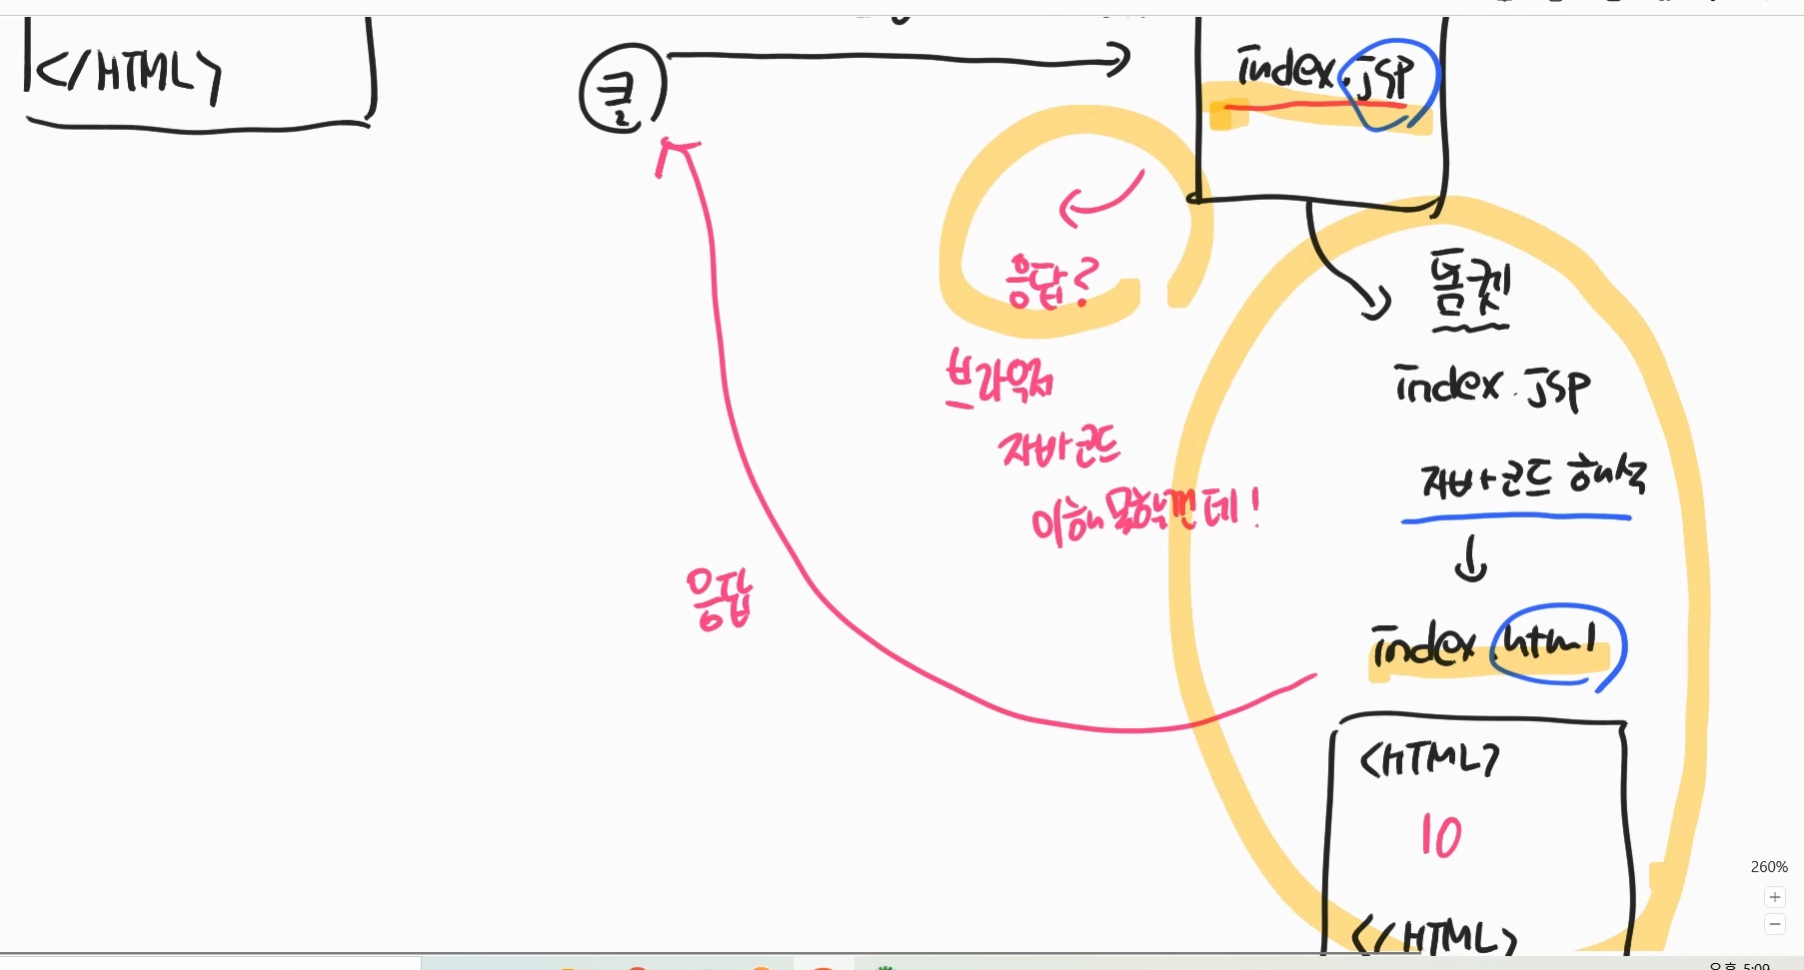 </HTML>
크2
index.jsp
응답?
브라우저
자바코드
이해 못할껀데!
톰캣
index.jsp
자바코드 해석
index.html
응답
<HTML>
10
</HTML>
260%
오후 5:09